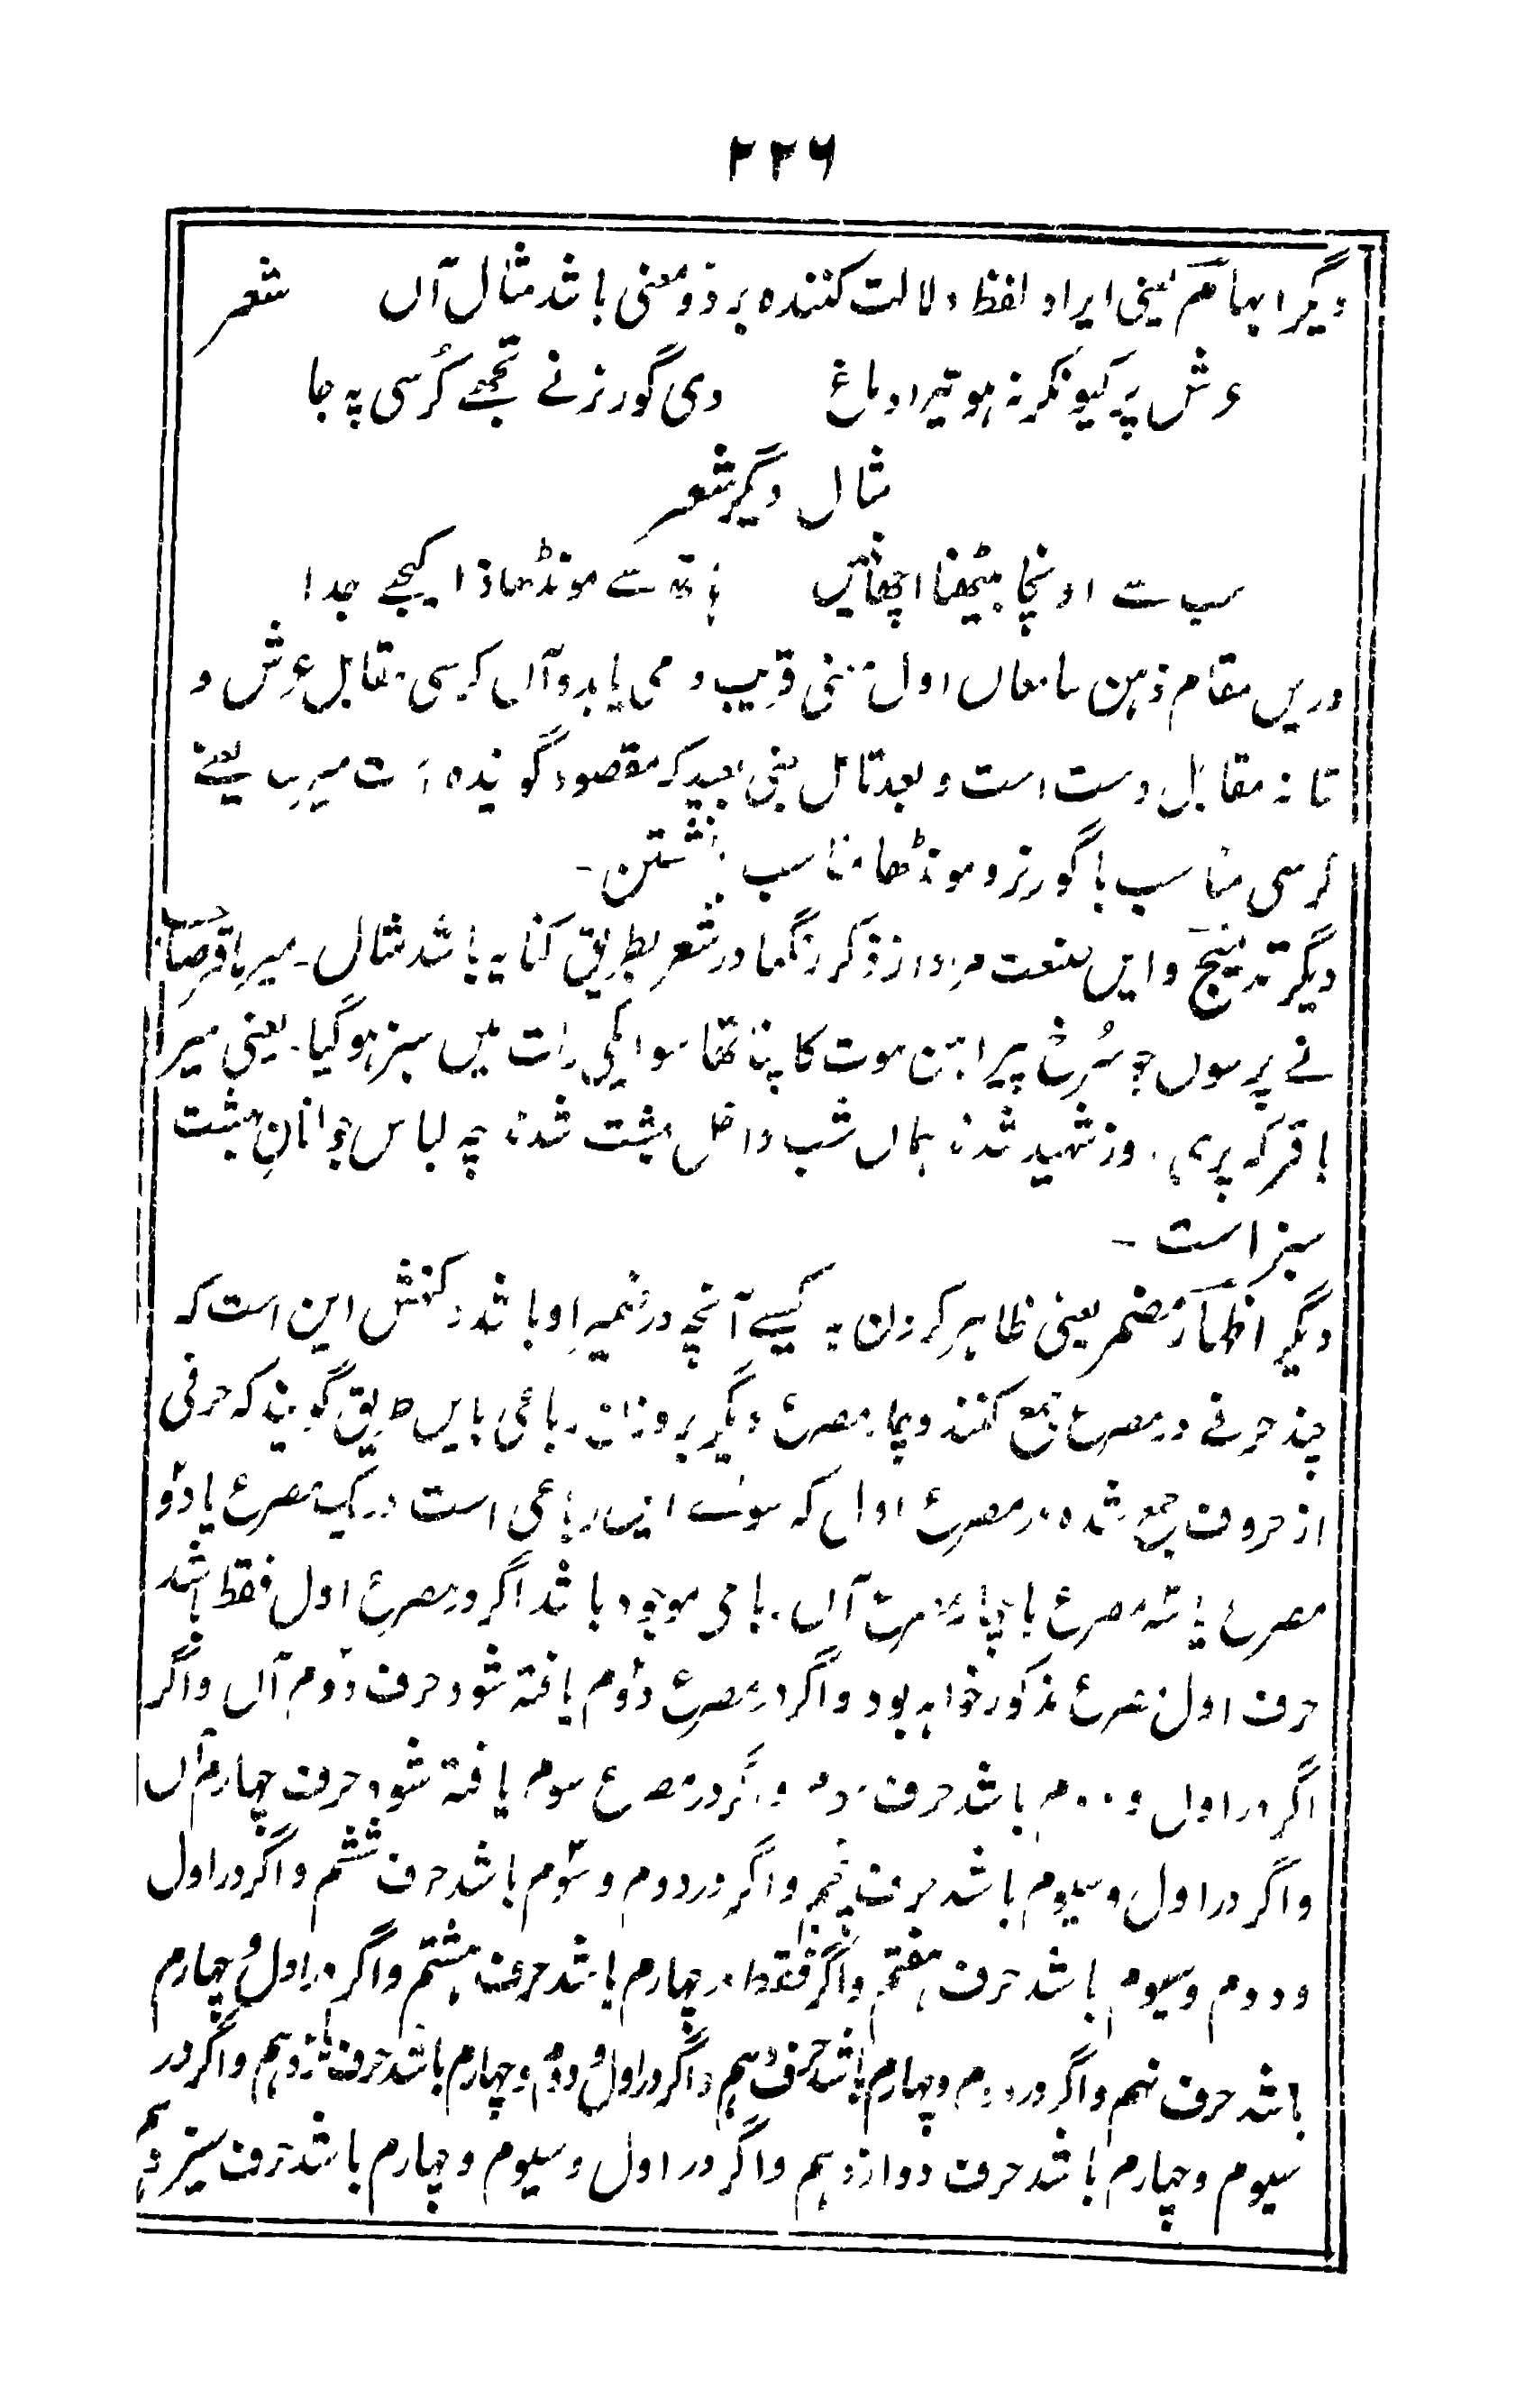 ۲۲۶
دیگر ابہام یعنی ایراد لفظ دلالت کنندہ بر ذو معنی باشد مثال آں شعر
عرش پر کیونکر نہ ہو تیرا دماغ دی گورنر نے تجھے کُرسی پہ جا
مثال دیگر شعر
سب سے اونچا بیٹھنا اچھا نہیں ہاتھ سے مونڈھا ذرا کیجے جدا
دریں مقام ذہن سامعاں اول معنی قریب و می یابد و آں کرسی مقابل عرش و
شانہ مقابل دست است و بعد تامل بمعنی بعید کہ مقصود گویندہ است میرسد یعنے
کرسی مناسب با گورنر و مونڈھا مناسب نشستن۔
دیگر تدبیج و ایں صنعت مراد از ذکر رنگہا در شعر بطریق کنایہ باشد مثال۔ میر باقر صاحب
نے پرسوں جو سُرخ پیراہن موت کا پہنا تھا سو اُسکی رات میں سبز ہو گیا۔ یعنی میر
باقر کہ پریروز شہید شدند ہماں شب داخل بہشت شدند چہ لباس جوانانِ بہشت
سبز است ۔
دیگر اظہار مضمر یعنی ظاہر کردن بہ کسے آنچہ در ضمیر او باشد رکنش این است کہ
چند حرفے در مصرع جمع کنند و چہار مصرع دیگر بر وزن رباعی بایں طریق گویند کہ حرفی
از حروف جمع شدہ در مصرع اول کہ سوائے ایں رباعی است در یک مصرع یا دو
مصرع یا سہ مصرع یا چہار مصرع آں رباعی موجود باشد اگر در مصرع اول فقط باشد
حرف اول مصرع مذکور خواہد بود و اگر در مصرع دوم یافتہ شود حرف دوم آں و اگر
اگر در اول و دوم باشد حرف سوم و اگر در مصرع سوم یافتہ شود حرف چہارم آں
و اگر در اول و سیوم باشد حرف پنجم و اگر در دوم و سوم باشد حرف ششم و اگر در اول
و دوم و سیوم باشد حرف ہفتم و اگر فقط در چہارم باشد حرف ہشتم و اگر در اول و چہارم
باشد حرف نہم و اگر در دوم و چہارم باشد حرف دہم و اگر در اول و دوم و چہارم باشد حرف یازدہم و اگر در
سیوم و چہارم باشد حرف دوازدہم و اگر در اول و سیوم و چہارم باشد حرف سیزدہم